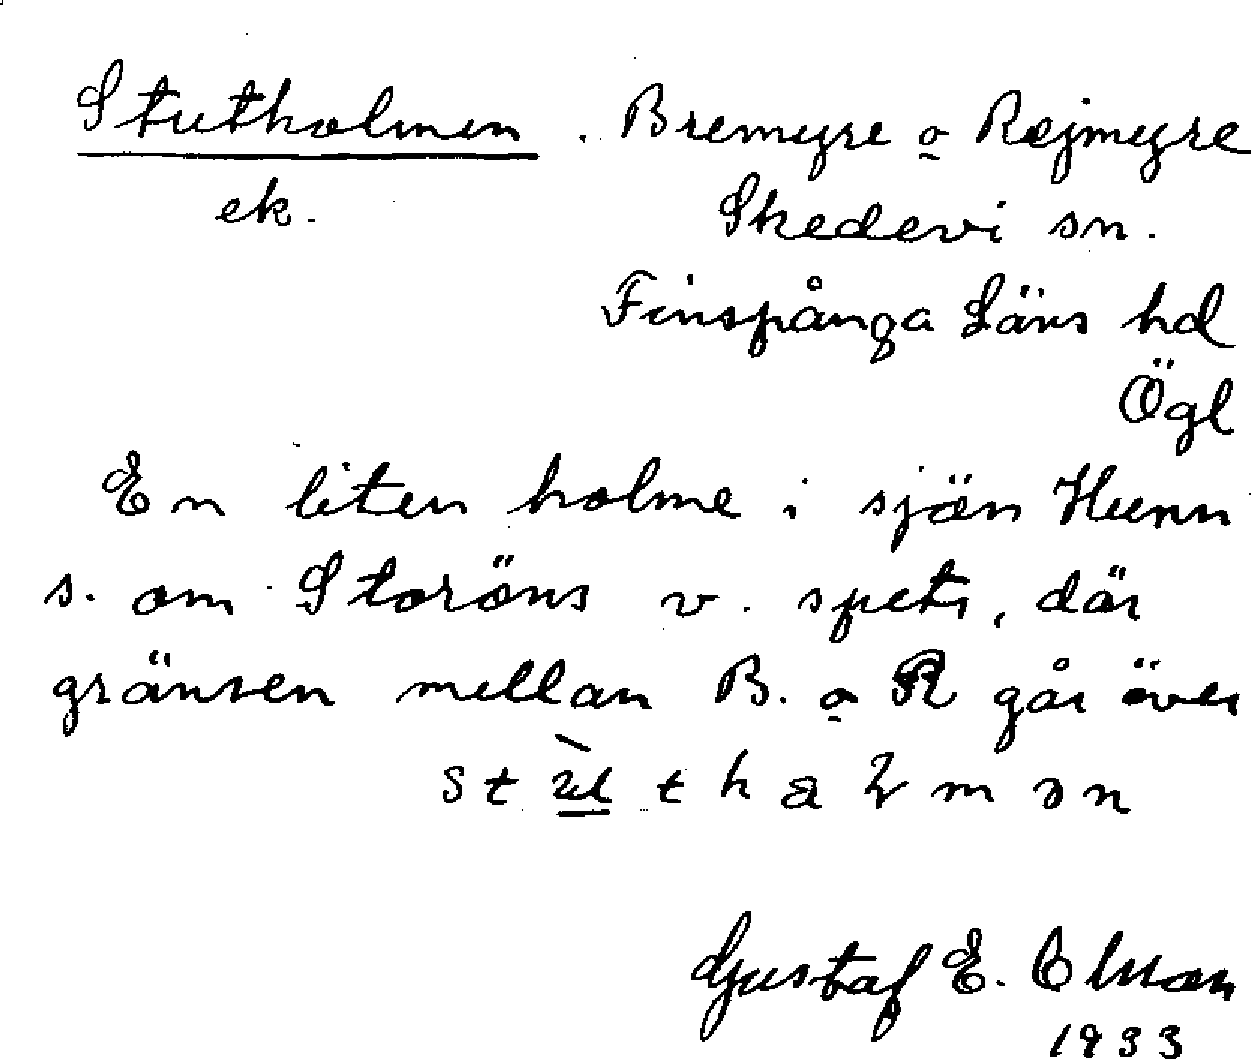 Stutholmen . Bremyre o Rejmyre
ek. Skedevi sn.
Finspånga Läns hd
Ögl
En liten holme i sjön Hunn
s. om Storöns v. spets, där
gränsen mellan B. o R går över
Gustaf E. Olsson
1933